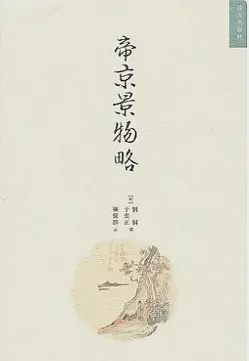 帝京景物略
[明]
劉侗
于奕正 撰
欒保群 注